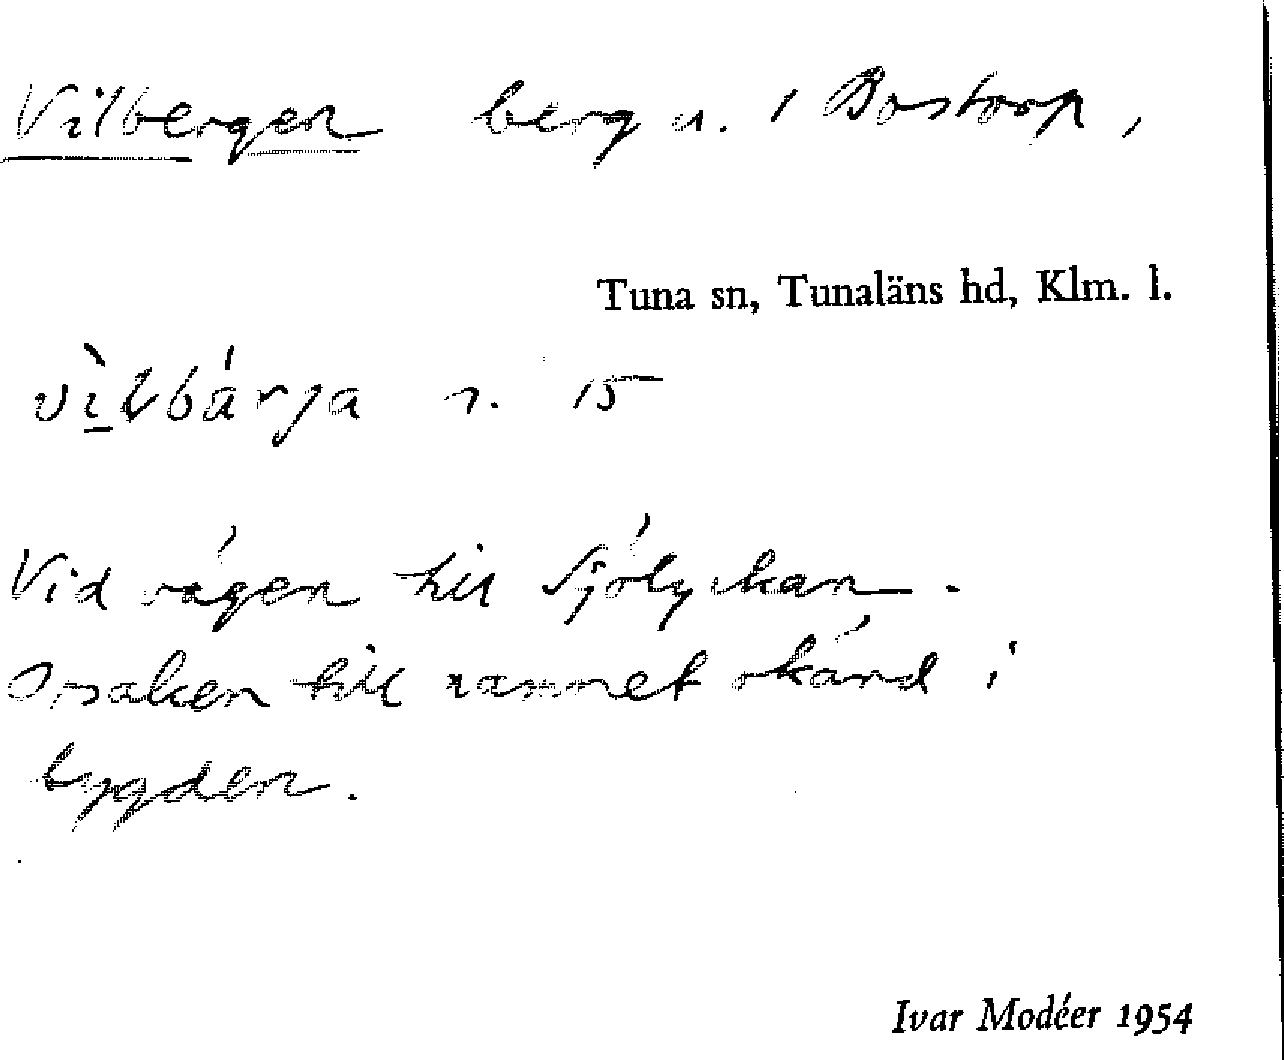 Vilbergen berg n. 1 Bostorp,
Tuna sn, Tunaläns hd, Klm. l.
vìlbárja r. 15
Vid vägen till Sjölyckan.
Orsaken till namnet okänd i
bygden.
Ivar Modéer 1954